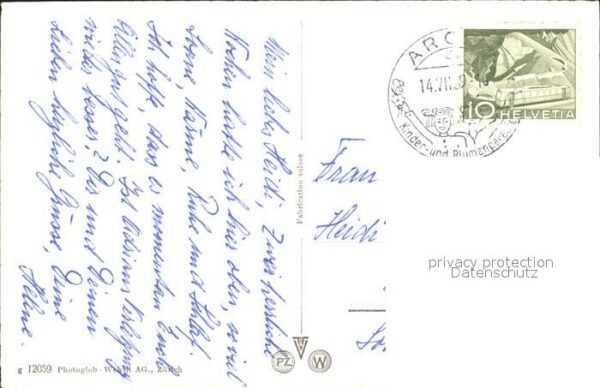 Mein liebes Heidi, Zwei herrliche
Wochen durfte ich hier oben, so viel
Sonne, Wärme, Ruhe und Schlaf.
Ich hoffe, dass es momentan Euch
Allen gut geht. Ist Adrians
wieder besser? Dir und Deinen
Lieben herzliche Grüsse, Deine
Helene.
Fabrication suisse
g 12059 Photoglob-Wehrli AG., Zürich
PZ
W
ARO
14.VII.5
Kinder- und Blumenpara
10 HELVETIA
Frau
Heidi
privacy protection
Datenschutz